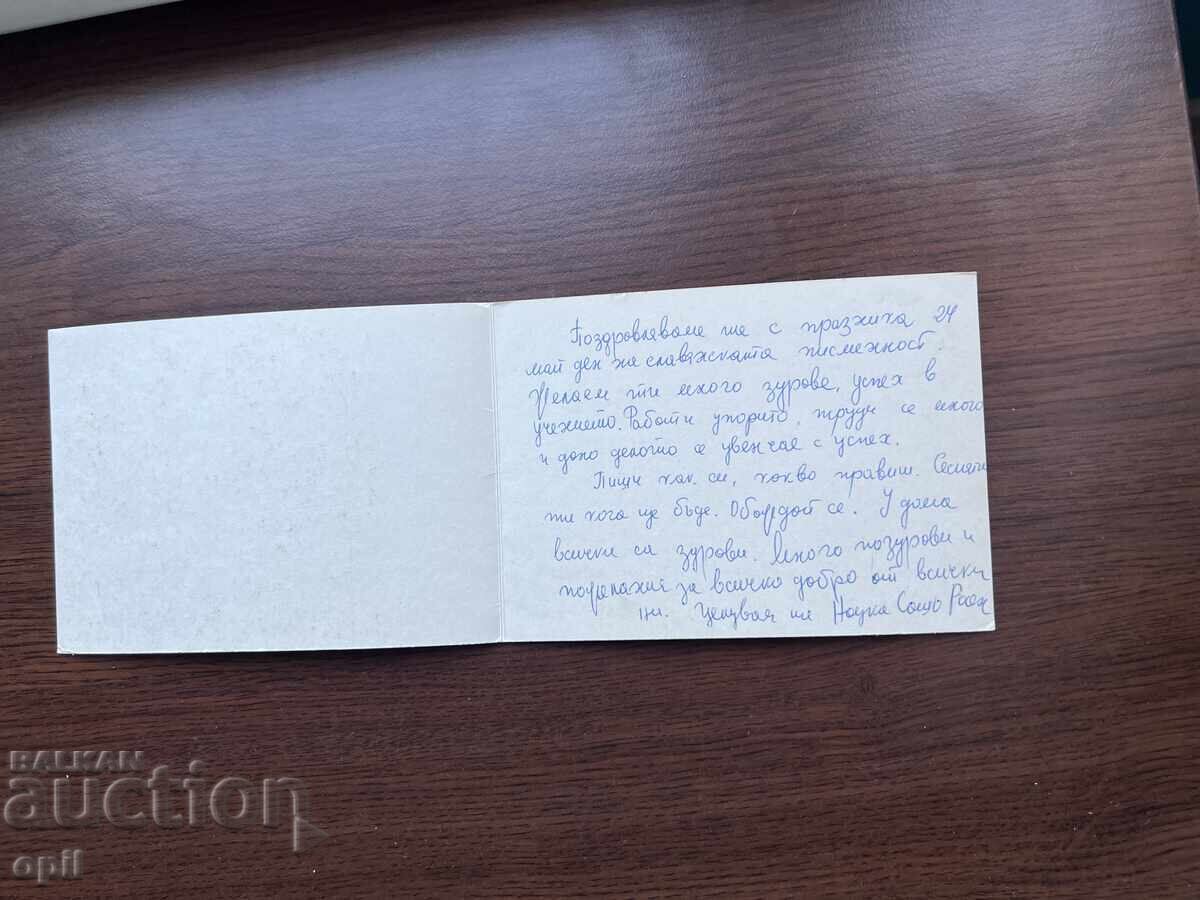 Поздравяваме те с празника 24
май ден на славянската писменост.
Желаем ти много здраве, успех в
учението. Работи упорито, труди се много
и дано делото се увенчае с успех.
Пиши как си, какво правиш. Сесията
ти кога ще бъде. Обаждай се. У дома
всички са здрави. Много поздрави и
пожелания за всичко добро от всички
ни. Целувам ти
BALKAN
auction
opil